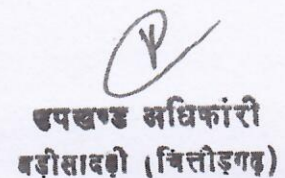 उपखण्ड अधिकारी
बड़ीसादड़ी (चित्तौड़गढ़)